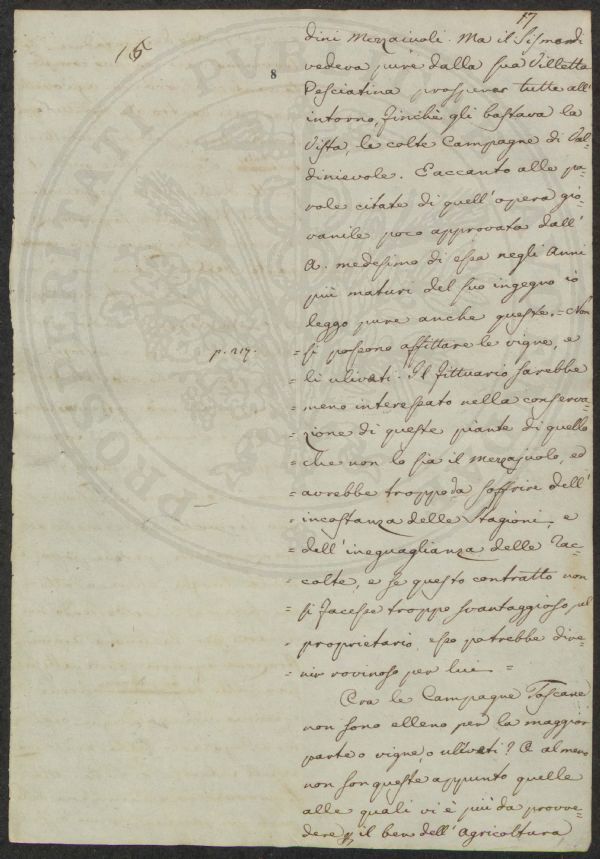 17
15
8
dini Mezzaiuoli. Ma il Sismondi
vedeva pure dalla sua Villetta
Pesciatina prosperar tutte all'
intorno, finchè gli bastava la
vista, le colte Campagne di Val-
dinievole. E accanto alle pa-
role citate di quell'opera gio-
vanile poco approvata dall'
A. medesimo di essa negli Anni
più maturi del suo ingegno io
leggo pure anche queste. = Non
p. 217.
= si possono affittare le vigne, e
= li uliveti. Il fittuario sarebbe
= meno interessato nella conserva-
= zione di queste piante di quello
= che non lo sia il mezzajuolo, ed
= avrebbe troppo da soffrire dell'
= incostanza delle Stagioni, e
= dall'ineguaglianza delle rac-
= colte, e se questo contratto non
= si facesse troppo svantaggioso pel
= proprietario, esso potrebbe dive-
= nir rovinoso per lui =
Ora le Campagne Toscane
non sono elleno per la maggior
parte o vigne, o uliveti? O almeno
non son queste appunto quelle
alle quali vi è più da provve-
dere p il ben dell'Agricoltura
PROSPERITATI PVB